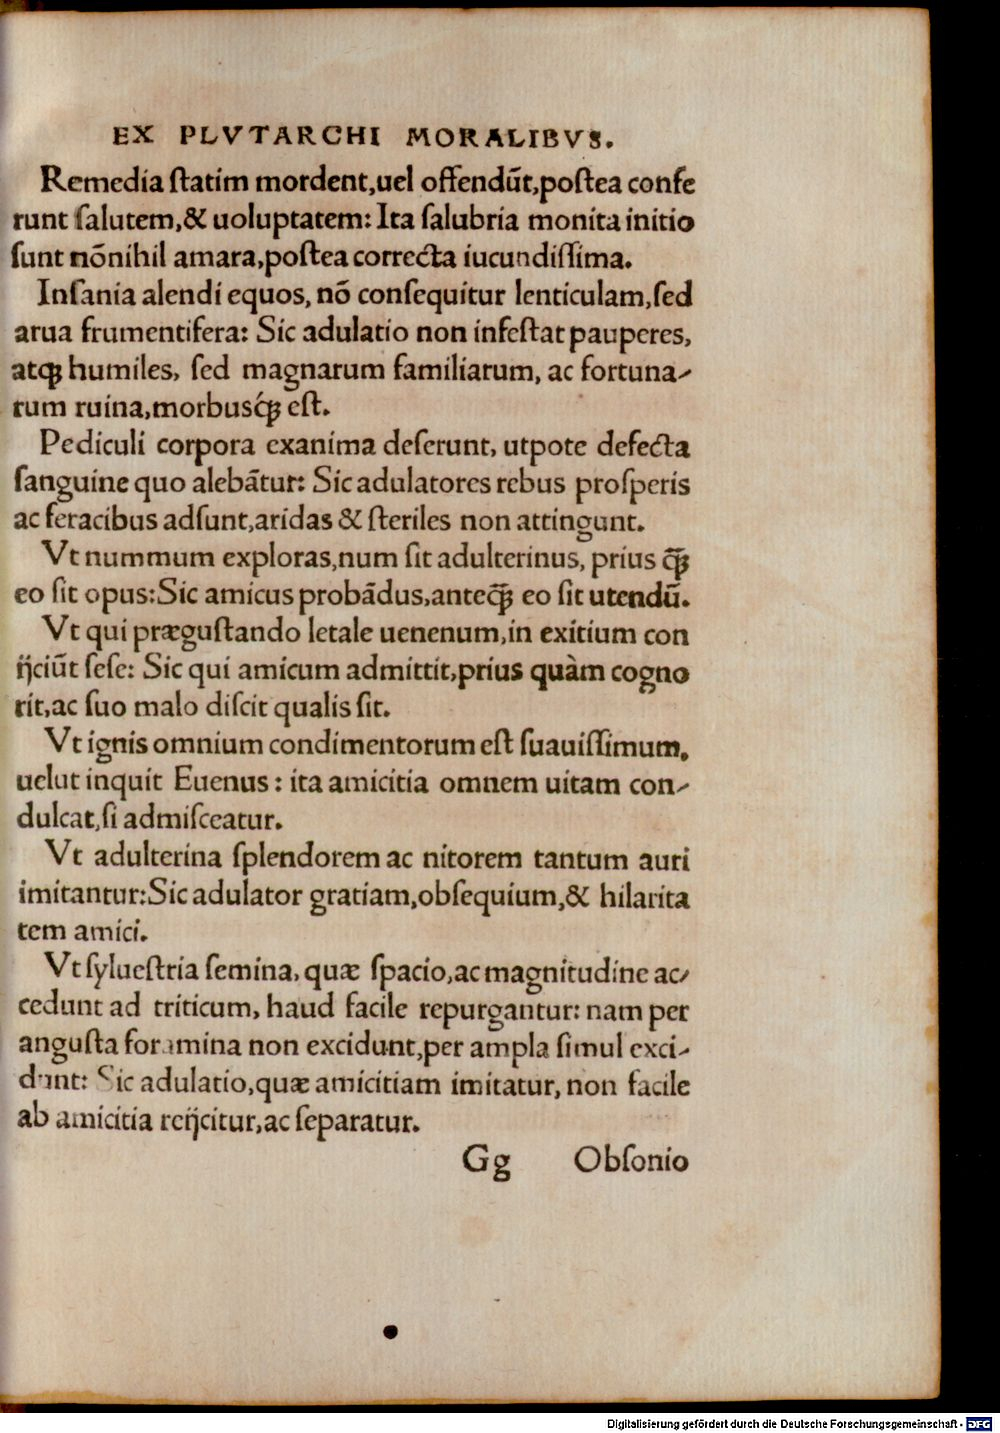 EX PLVTARCHI MORALIBVS.
Remedia ſtatim mordent,uel offendūt,poſtea confe
runt ſalutem,& uoluptatem: Ita ſalubria monita initio
ſunt nōnihil amara,poſtea correcta iucundiſſima.
Inſania alendi equos, nō conſequitur lenticulam,ſed
arua frumentifera: Sic adulatio non infeſtat pauperes,
atqꝫ humiles, ſed magnarum familiarum, ac fortuna-
rum ruina,morbusq́ꝫ eſt.
Pediculi corpora exanima deſerunt, utpote defecta
ſanguine quo alebātur: Sic adulatores rebus proſperis
ac feracibus adſunt,aridas & ſteriles non attingunt.
Vt nummum exploras,num ſit adulterinus, prius q̄ꝫ
eo ſit opus:Sic amicus probādus,anteq̄ꝫ eo ſit utendū.
Vt qui prægustando letale uenenum,in exitium con
ijciūt ſeſe: Sic qui amicum admittit,prius quàm cogno
rit,ac ſuo malo diſcit qualis ſit.
Vt ignis omnium condimentorum eſt ſuauiſſimum,
uelut inquit Euenus: ita amicitia omnem uitam con-
dulcat,ſi admiſceatur.
Vt adulterina ſplendorem ac nitorem tantum auri
imitantur:Sic adulator gratiam,obſequium,& hilarita
tem amici.
Vt ſylueſtria ſemina, quæ ſpacio,ac magnitudine ac-
cedunt ad triticum, haud facile repurgantur: nam per
anguſta foramina non excidunt,per ampla ſimul exci-
dunt: Sic adulatio,quæ amicitiam imitatur, non facile
ab amicitia reijcitur,ac ſeparatur.
Gg Obſonio
Digitalisierung gefördert durch die Deutsche Forschungsgemeinschaft - DFG